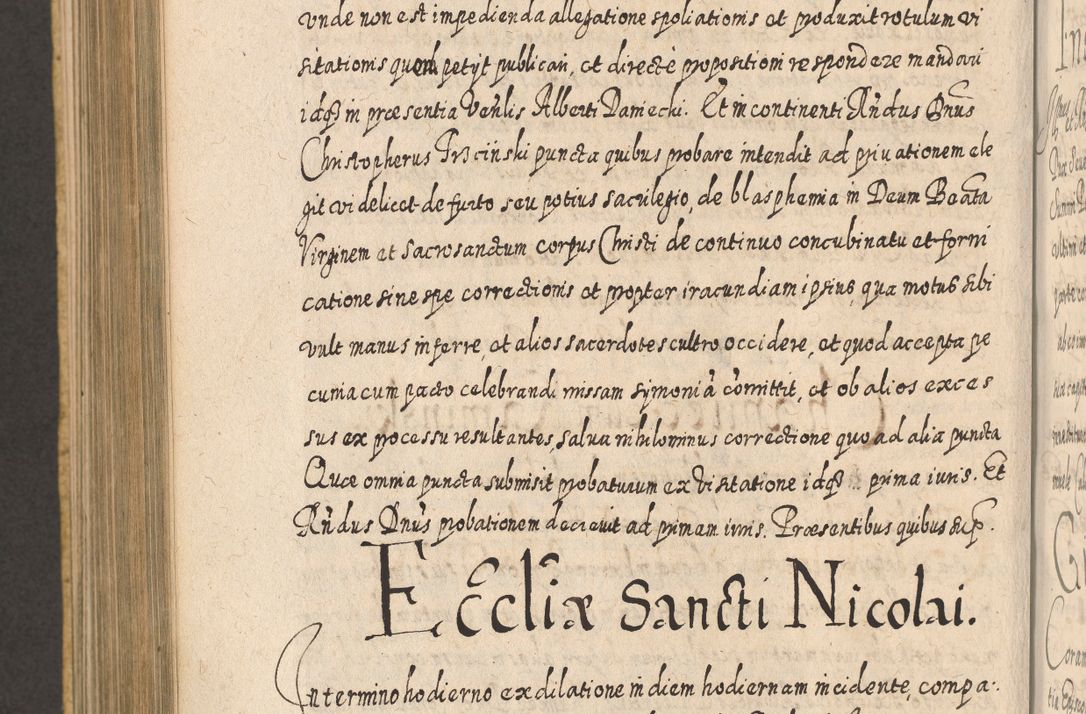 unde non est impedienda allegatione spoliationis et produxit rotulum vi
sitationis quem petijt publicari, et directe propositioni respondere mandari
idq3 in præsentia Venlis Alberti Damecki. Et in continenti Rndus Dnus
Christopherus Trzciński puncta quibus probare intendit ad privationem ele
git videlicet de furto seu potius sacrilegio, de blasphemia in Deum Beata
Virginem et Sacrosanctum corpus Christi de continuo concubinatu et forni
catione sine spe correctionis et propter iracundiam ipsius, qua motus sibi
vult manus inferre, et alios sacerdotes cultro occidere, et quod accepta pe
cunia cum pacto celebrandi missam symoniã cõmittit, et ob alios exces
sus ex processu resultantes, salva nihilominus correctione quo ad alia puncta
Quæ omnia puncta submisit probaturum ex visitatione idq3 prima iuris. Et
Rndus Dnus probationem decrevit ad primam iuris. Præsentibus quibus sup.
Ecclīæ Sancti Nicolai.
In termino hodierno ex dilatione in diem hodiernam incidente, compa: